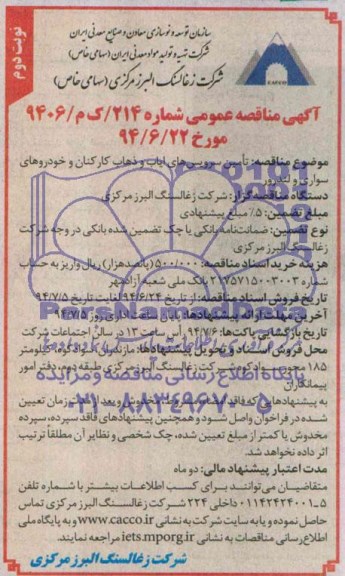 نوبت دوم
سازمان توسعه و نوسازی معادن و صنایع معدنی ایران
شرکت تهیه و تولید مواد معدنی ایران (سهامی خاص)
شرکت زغالسنگ البرز مرکزی (سهامی خاص)
آگهی مناقصه عمومی شماره ۲۱۴/ک م/۹۴۰۶
مورخ ۹۴/۶/۲۲
موضوع مناقصه: تأمین سرویس های ایاب و ذهاب کارکنان و خودروهای
سواری و
دستگاه مناقصه گزار: شرکت زغالسنگ البرز مرکزی
مبلغ تضمین: ۵٪ مبلغ پیشنهادی
نوع تضمین: ضمانت نامه بانکی یا چک تضمین شده بانکی در وجه شرکت
زغالسنگ البرز مرکزی
هزینه خرید اسناد مناقصه: ۵۰۰/۰۰۰ (پانصدهزار) ریال واریز به حساب
شماره ۲۱۷۵۷۱۵۰۰۳۰۰۳ بانک ملی شعبه آزادمهر
تاریخ فروش اسناد مناقصه: از تاریخ ۹۴/۶/۲۴ لغایت تاریخ ۹۴/۷/۵
آخرین مهلت ارائه پیشنهادها: پایان ساعت اداری روز ۹۴/۷/۵
تاریخ بازگشایی پاکت ها: ۹۴/۷/۶ رأس ساعت ۱۳ در سالن اجتماعات شرکت
محل فروش اسناد و تحویل پیشنهادها: مازندران، سوادکوه، کیلومتر
۱۸۵ محور سوادکوه شرکت زغالسنگ البرز مرکزی طبقه دوم، دفتر امور
پیمانکاران
به پیشنهادهای فاقد امضاء، مشروط، مخدوش و بعد از زمان تعیین
شده در فراخوان واصل شود و همچنین پیشنهادهای فاقد سپرده، سپرده
مخدوش یا کمتر از مبلغ تعیین شده، چک شخصی و نظایر آن مطلقاً ترتیب
اثر داده نخواهد شد.
مدت اعتبار پیشنهاد مالی: دو ماه
متقاضیان می توانند برای کسب اطلاعات بیشتر با شماره تلفن
۵-۰۱۱۴۲۴۲۴۰۰۱ داخلی ۲۲۴ شرکت زغالسنگ البرز مرکزی تماس
حاصل نموده و یا به سایت شرکت به نشانی www.cacco.ir و به پایگاه ملی
اطلاع رسانی مناقصات به نشانی iets.mporg.ir مراجعه نمایند.
شرکت زغالسنگ البرز مرکزی
پایگاه اطلاع رسانی مناقصه و مزایده
۰۲۱-۸۸۳۴۹۶۷۰-۵